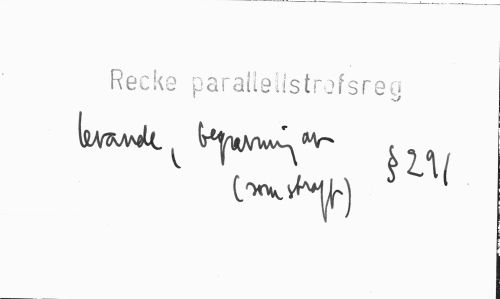 Recke parallellstrofsreg
levande, begravning av
(som straff)
§ 291